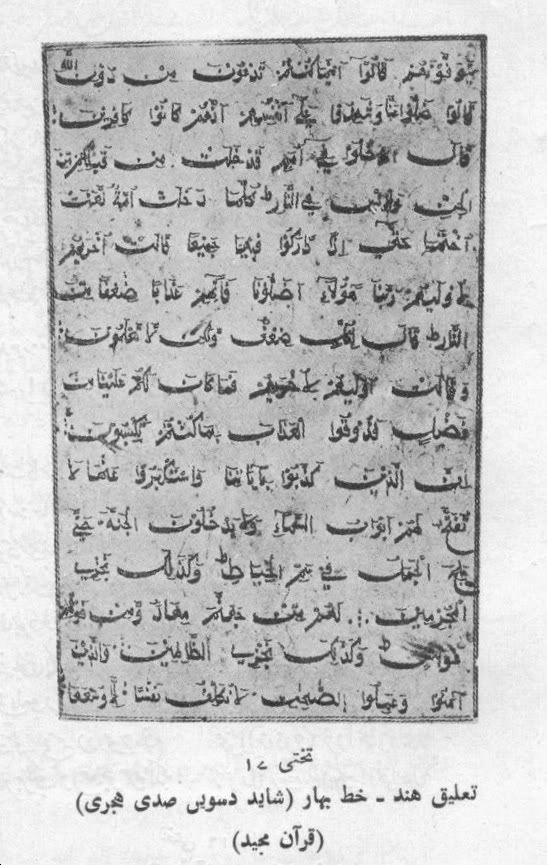 يتوفونهم قالوا اينما كنتم تدعون من دون الله
قالوا ضلوا عنا وشهدوا على انفسهم انهم كانوا كافرين
قال ادخلوا في امم قد خلت من قبلكم من
الجن والانس في النار كلما دخلت امة لعنت
اختها حتى اذا اداركوا فيها جميعا قالت اخريهم
لاوليهم ربنا هؤلاء اضلونا فاتهم عذابا ضعفا من
النار قال لكل ضعف ولكن لا تعلمون
وقالت اوليهم لاخريهم فما كان لكم علينا من
فضل فذوقوا العذاب بما كنتم تكسبون
ان الذين كذبوا باياتنا واستكبروا عنها لا
تفتح لهم ابواب السماء ولا يدخلون الجنة حتى
يلج الجمل في سم الخياط وكذلك نجزي
المجرمين لهم من جهنم مهاد ومن فوقهم
غواش وكذلك نجزي الظالمين والذين
آمنوا وعملوا الصلحت لا نكلف نفسا الا وسعها
تختی ۱۷
تعلیق ہند ـ خط بہار (شاید دسویں صدی ہجری)
(قرآن مجید)